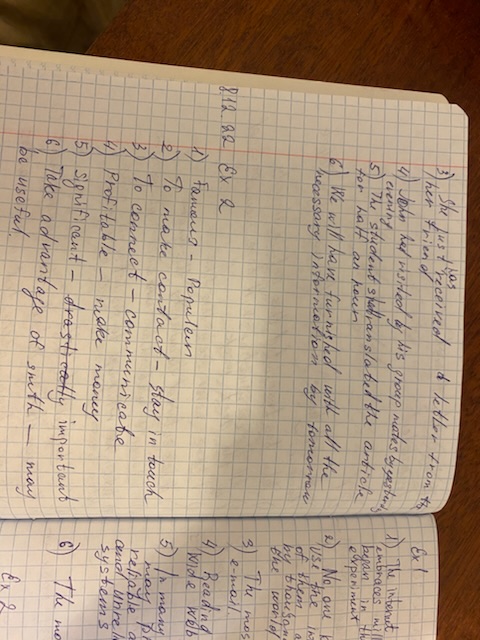 3) She just has received a letter from
her friend
4) John had visited by his group mates yesterday
evening
5) The student translated the article
for half an hour
6) We will have furnished with all the
necessary information by tomorrow
8.12.22 Ex 2
1) Famous - Popular
2) To make contact - stay in touch
3) To connect - communicate
4) Profitable - make money
5) Significant - drastically important
6) Take advantage of smth - may
be useful.
Ex 1
1) The internet
embraces
began in th
experiment
2) No one k
use the in
of them a
by thousan
the world
3) The mos
e-mail
4) Reading
Wide Web
5) In many
may p
reliable a
and unre
systems
6) The mo
Ex 2